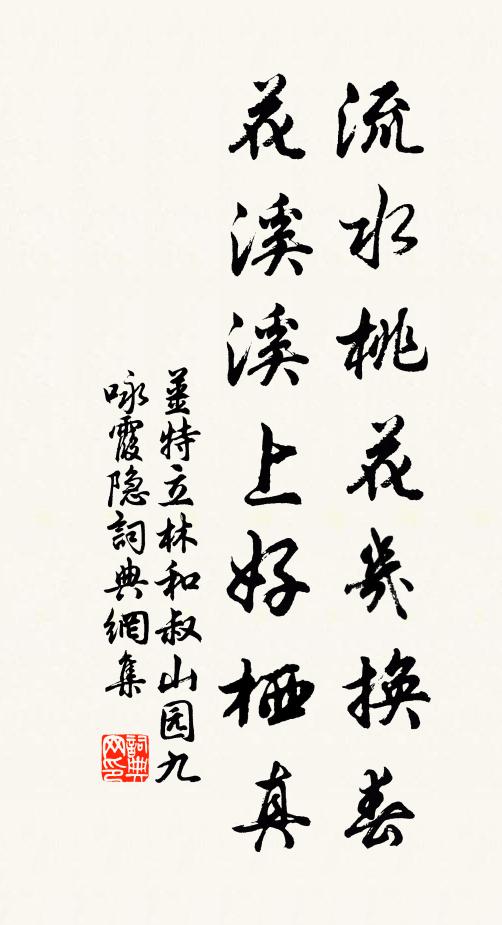 流水桃花几换春
花溪溪上好栖真
姜特立林和叔山园九
咏霞隐詞典網集
詞典网印